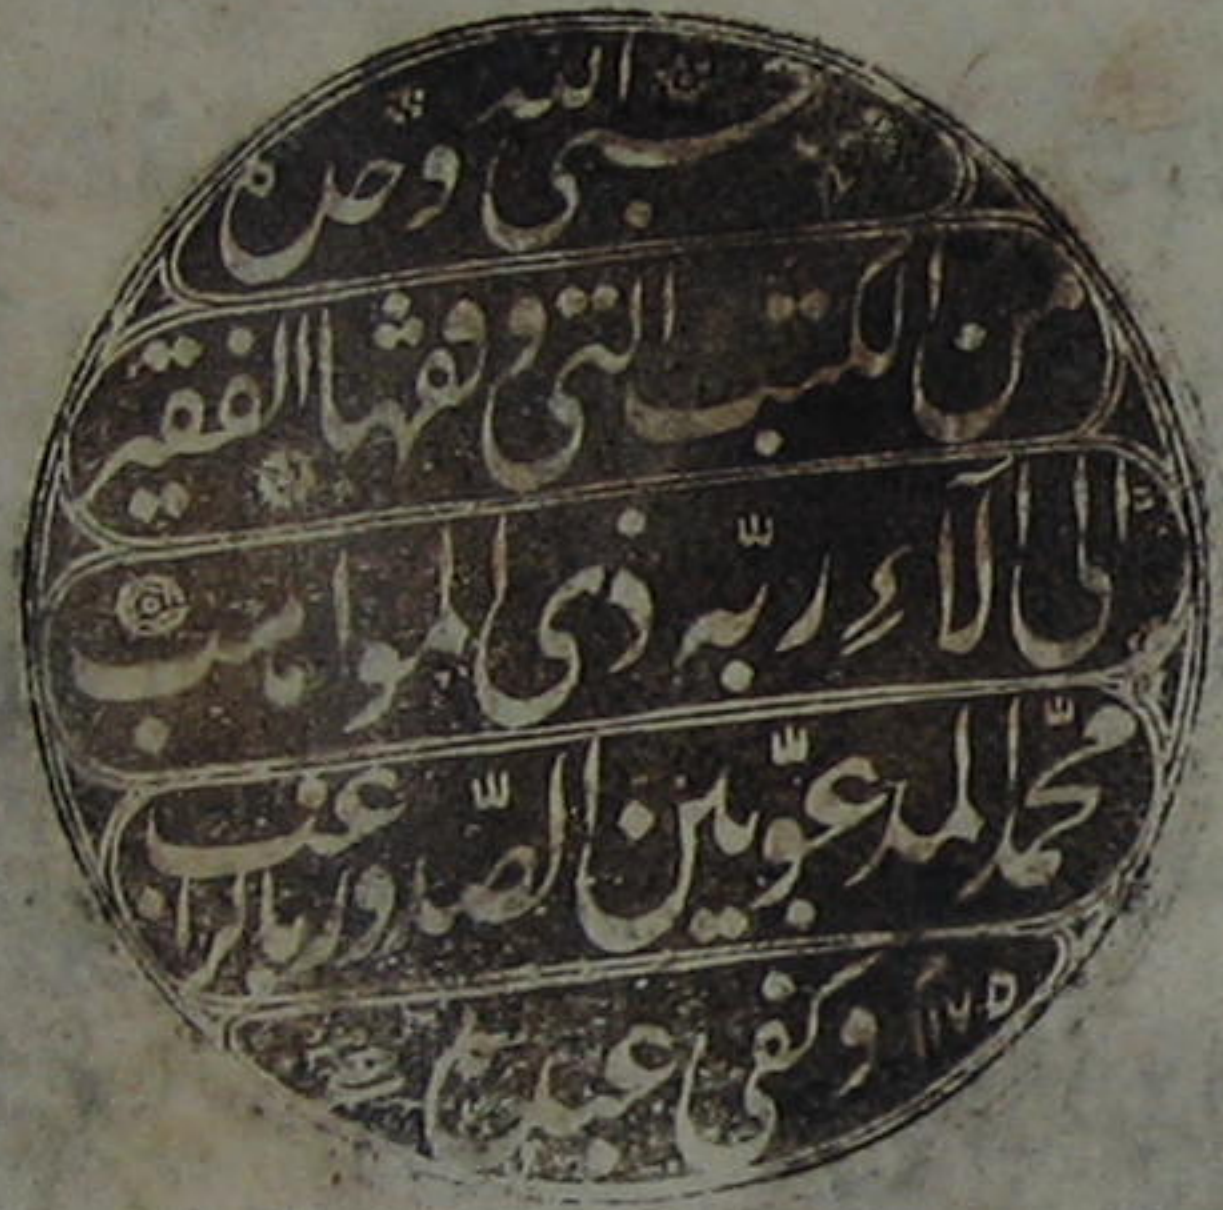 حسبي الله وحده
من الكتب التي وقفها الفقير
الى آلاء ربّه ذي المواهب
محمّد المدعوّ بين الصّدور بالراغب
وكفى عبده ١١٧٥